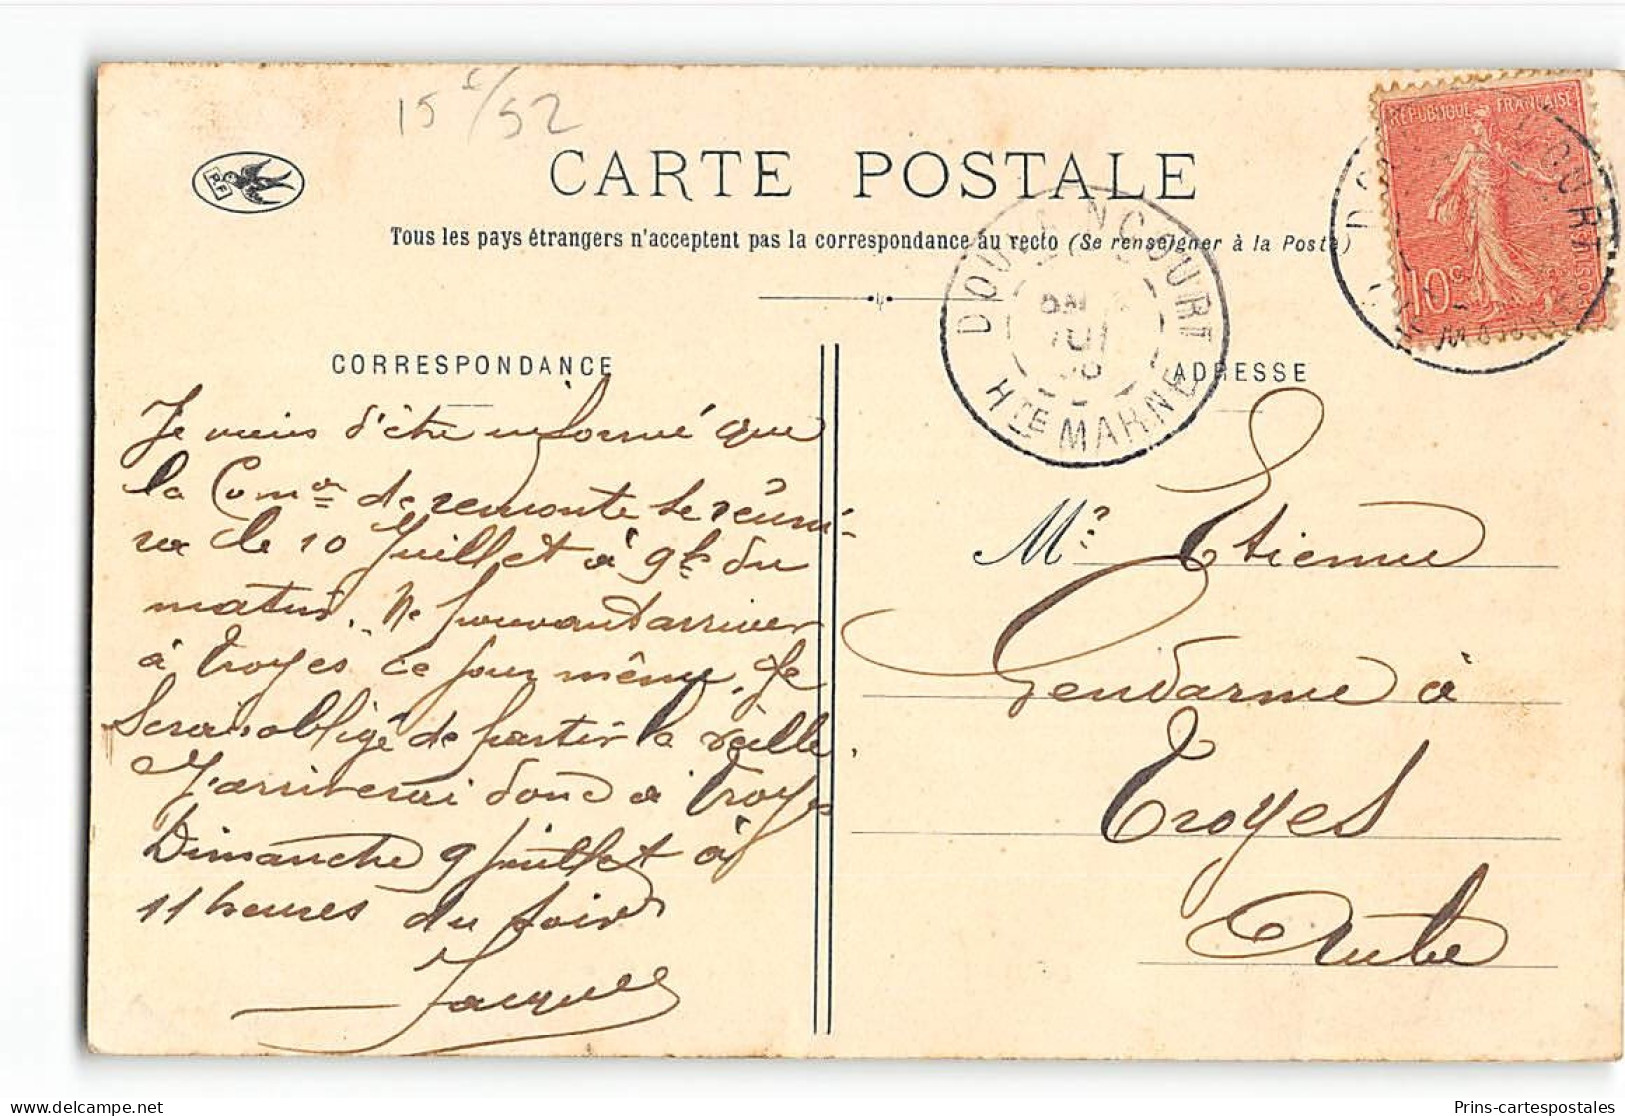 15 £/52
CARTE POSTALE
Tous les pays étrangers n'acceptent pas la correspondance au recto (Se renseigner à la Poste)
P.F
RÉPUBLIQUE FRANÇAISE
10c
DOULAINCOURT
Hte MARNE
CORRESPONDANCE
Je viens d'être informé que
la Comon de remonte se réuni-
ra le 10 Juillet à 9h du
matin. Ne pouvant arriver
à Troyes ce jour même, je
serais obligé de partir la veille.
J'arriverai donc à Troyes
Dimanche 9 juillet à
11 heures du soir
Jacques
ADRESSE
Mr Etienne
Gendarme à
Troyes
Aube
Prins-cartespostales
delcampe.net